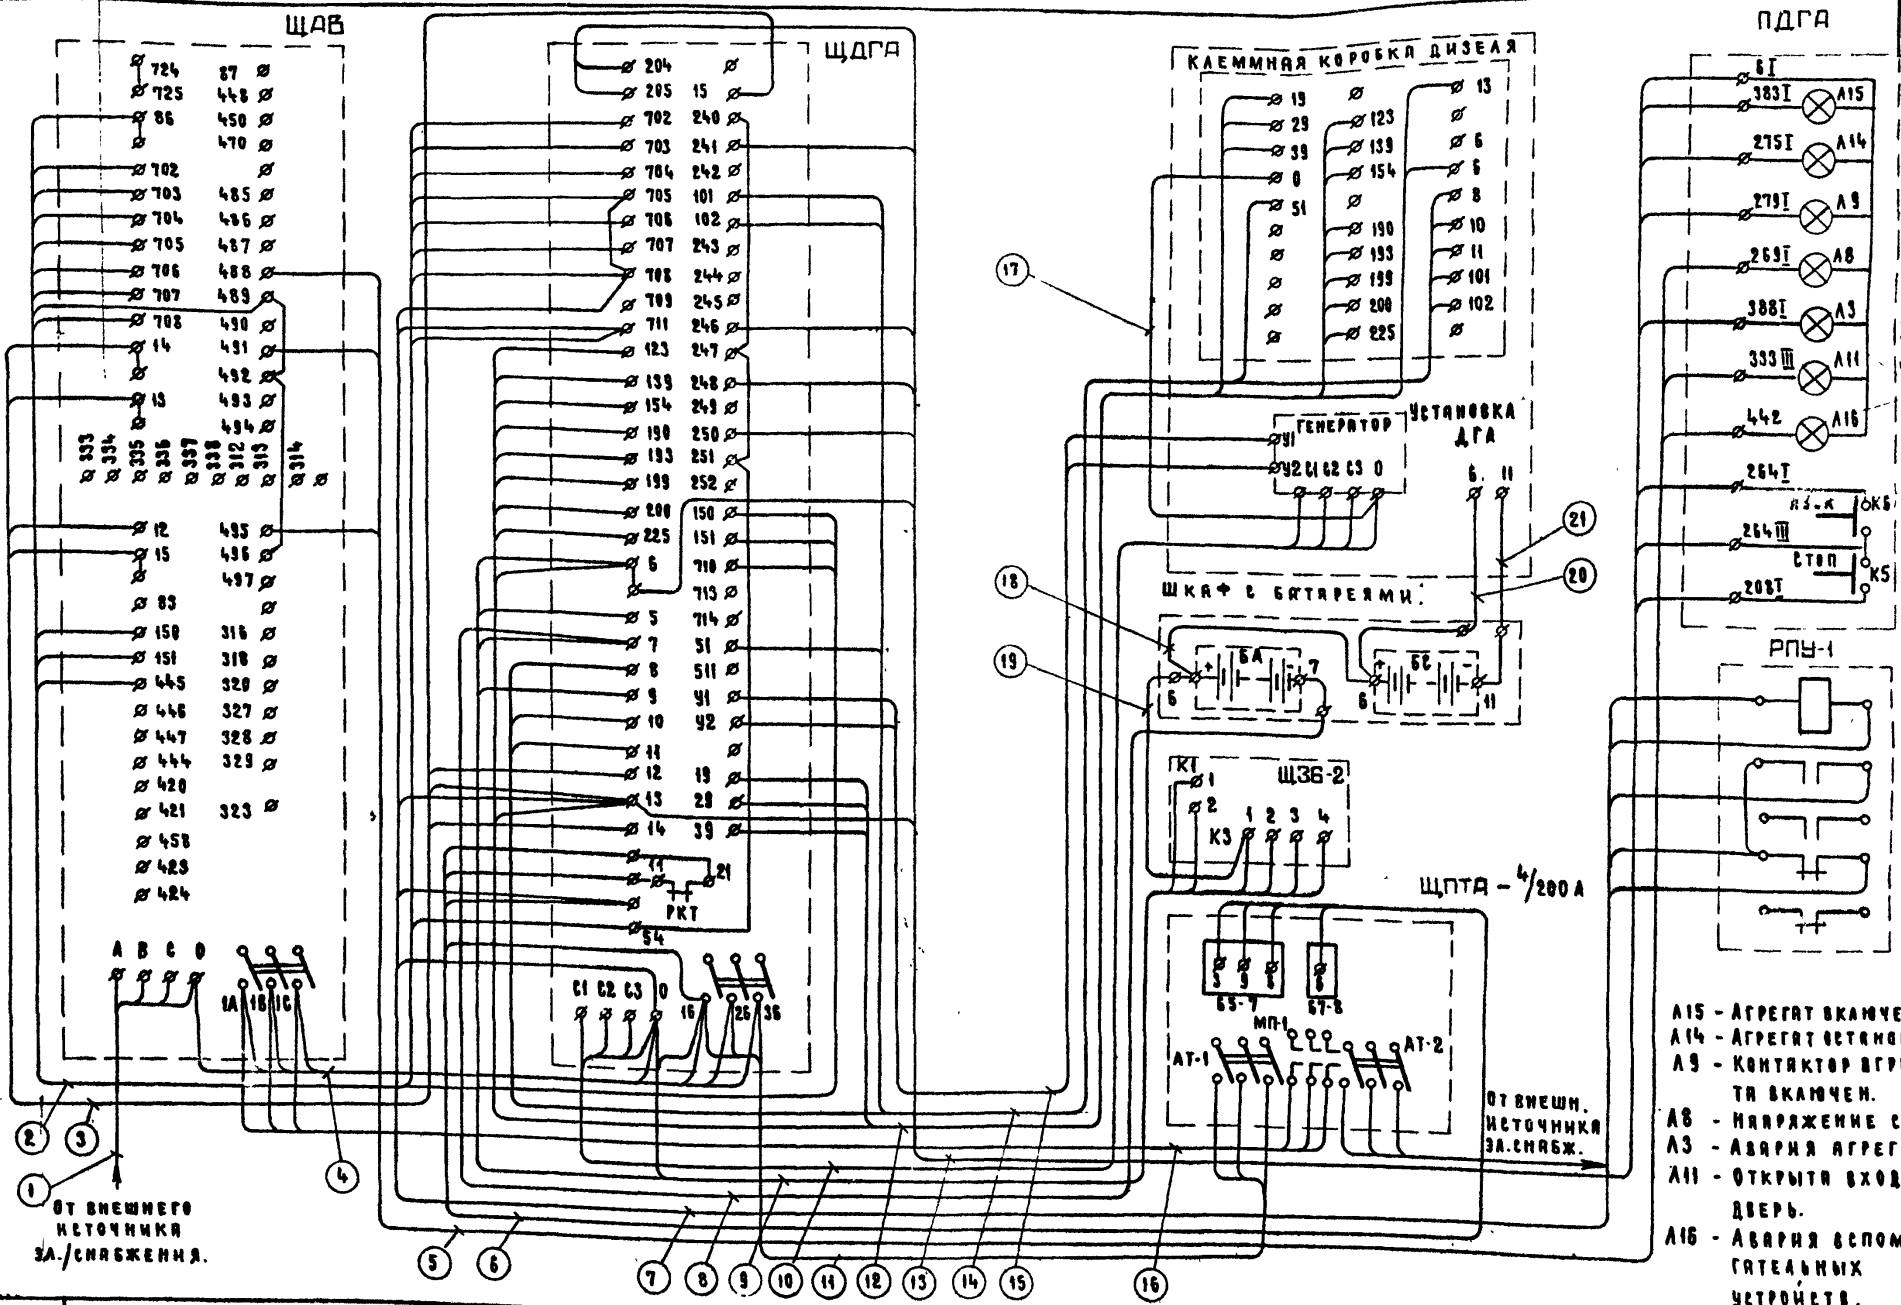 ЩАВ
724 87
725 448
86 450
470
702
703 485
704 486
705 487
706 488
707 489
708 490
14 491
492
13 493
494
333 334 335 336 337 338 312 313 314
12 495
15 496
497
83
150 316
151 318
445 320
446 327
447 328
444 329
420
421 323
458
423
424
А В С О
1А 1В 1С
2
3
1
4
ОТ ВНЕШНЕГО
ИСТОЧНИКА
ЭЛ./СНАБЖЕНИЯ.
ЩДГА
204
205 15
702 240
703 241
704 242
705 101
706 102
707 243
708 244
709 245
711 246
123 247
139 248
154 249
190 250
193 251
199 252
200 150
225 151
6 710
713
5 714
7 51
8 511
9 У1
10 У2
11
12 19
13 29
14 39
11 21
РКТ
54
С1 С2 С3 О
1Б 2Б 3Б
5 6 7 8 9 10 11 12 13 14 15 16
КЛЕММНАЯ КОРОБКА ДИЗЕЛЯ
19 13
29 123
39 139 6
0 154 6
51 8
190 10
193 11
199 101
200 102
225
17
ГЕНЕРАТОР
У1
У2 С1 С2 С3 О
УСТАНОВКА
ДГА
6. 11
21
20
18
19
ШКАФ С БАТАРЕЯМИ.
+ БА - 7
6
+ БС -
6 11
К1 ЩЗБ-2
1
2
К3 1 2 3 4
ЩПТА - 4/200 А
Б5-7 Б7-8
МП-1
АТ-1 АТ-2
ОТ ВНЕШН.
ИСТОЧНИКА
ЭЛ.СНАБЖ.
ПДГА
6I
383I Л15
275I Л14
279I Л9
269I Л8
388I Л3
333III Л11
442 Л16
264I
К6
264III
СТОП К5
208I
РПУ-1
Л15 - АГРЕГАТ ВКЛЮЧЕ
Л14 - АГРЕГАТ ОСТАНО
Л9 - КОНТАКТОР АГР
ТА ВКЛЮЧЕН.
Л8 - НАПРЯЖЕНИЕ С
Л3 - АВАРИЯ АГРЕГ
Л11 - ОТКРЫТА ВХОД
ДВЕРЬ.
Л16 - АВАРИЯ ВСПОМ
ГАТЕЛЬНЫХ
УСТРОЙСТВ.